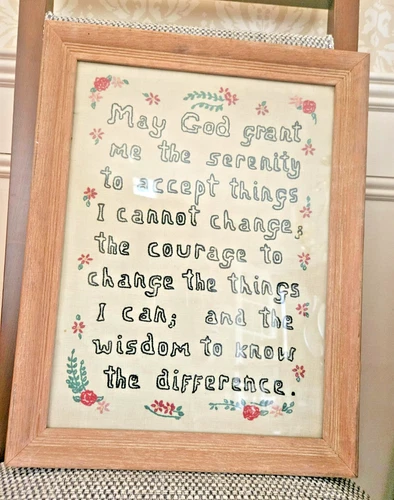 May God grant
me the serenity
to accept things
I cannot change;
the courage to
change the things
I can; and the
wisdom to know
the difference.